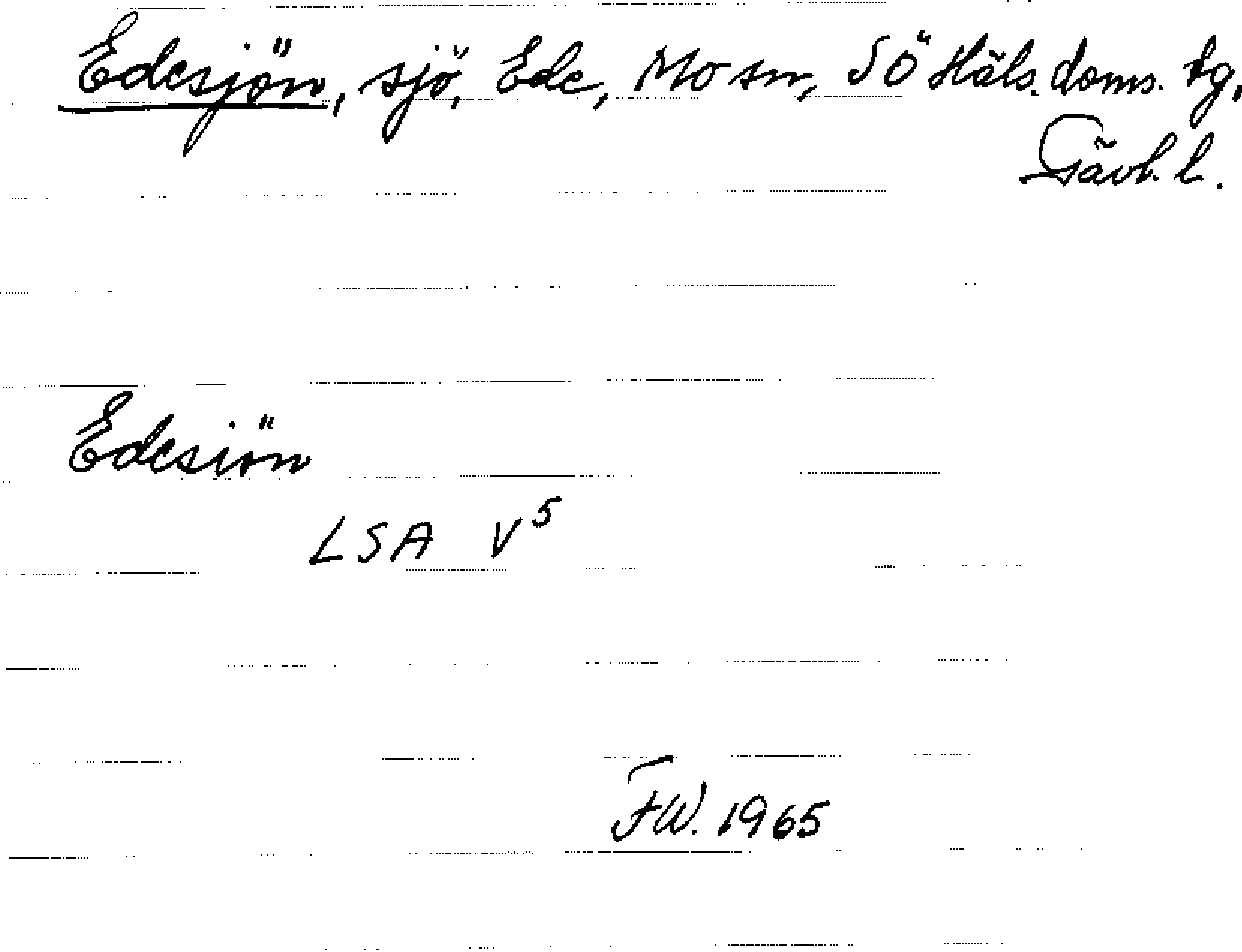 Edesjön, sjö, Ede, Mo sn, SÖ Häls. doms. tg,
Gävl. l.
Edesiön
LSA V⁵
FW. 1965